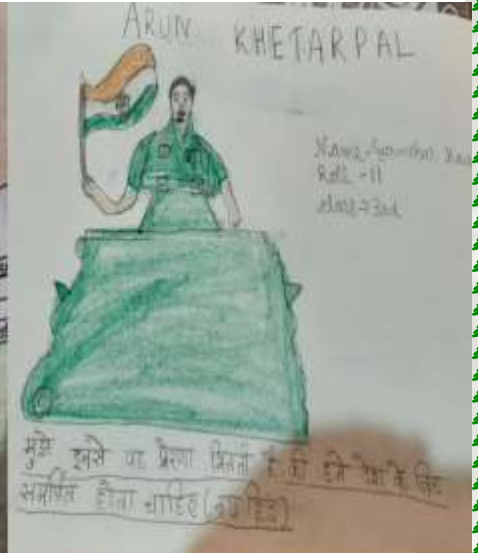 ARUN KHETARPAL
Name
Roll - 11
class - 3rd
मुझे इनसे यह प्रेरणा मिलती है की हमें देश के लिए
समर्पित होना चाहिए (जय हिंद)